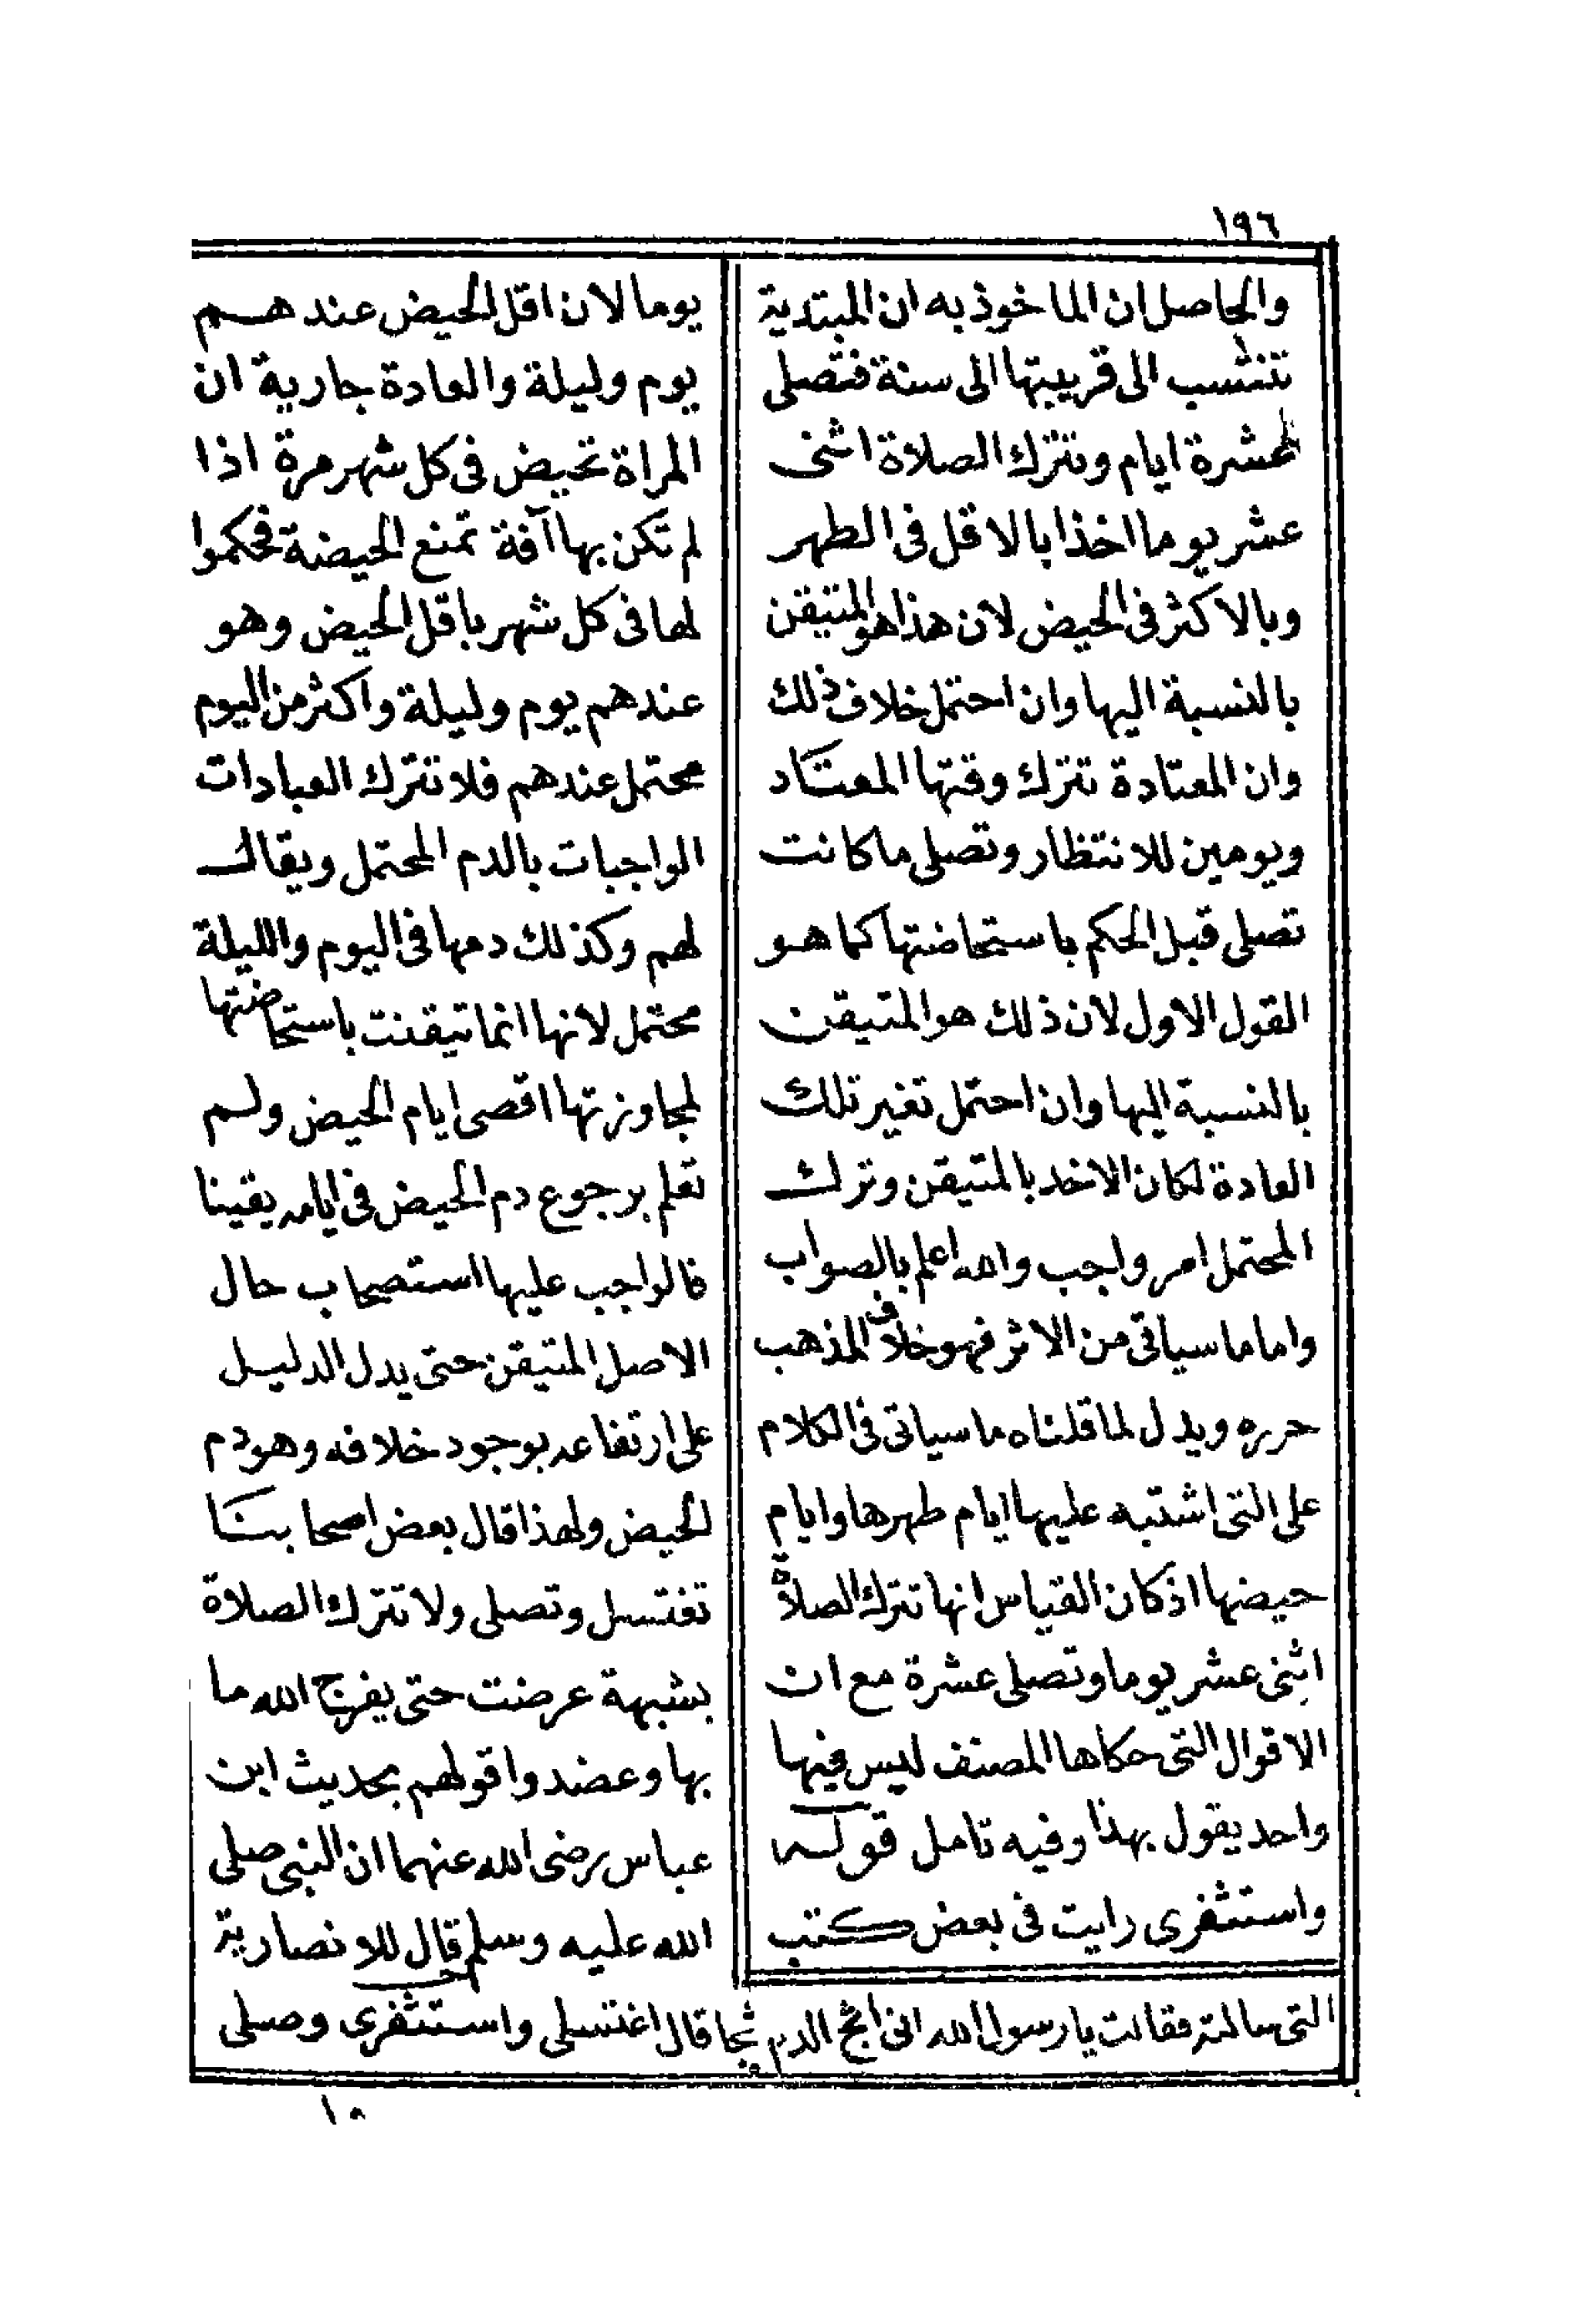 ١٩٦
والحاصل ان الماخوذ به ان المبتدية
تنتسب الى قريبتها الى سنة فتصلى
عشرة ايام وتترك الصلاة اثنى
عشر يوما اخذا بالاقل فى الطهر
وبالاكثر فى الحيض لان هذا هو المتيقن
بالنسبة اليها وان احتمل خلاف ذلك
وان المعتادة تترك وقتها المعتاد
ويومين للانتظار وتصلى ما كانت
تصلى قبل الحكم باستحاضتها كما هو
القول الاول لان ذلك هو المتيقن
بالنسبة اليها وان احتمل تغير تلك
العادة لكان الاخد بالمتيقن وترك
المحتمل امر واجب والله اعلم بالصواب
واما ما سياتى من الاثر فهو خلاف المذهب
حرره ويدل لما قلناه ما سياتى فى الكلام
على التى اشتبه عليها ايام طهرها وايام
حيضها اذ كان القياس انها تترك الصلاة
اثنى عشر يوما وتصلى عشرة مع ان
الاقوال التى حكاها المصنف ليس فيها
واحد يقول بهذا وفيه تامل قوله
واستثفرى رايت فى بعض كتب
يوما لان اقل الحيض عندهم
يوم وليلة والعادة جارية ان
المراة تحيض فى كل شهر مرة اذا
لم تكن بها آفة تمنع الحيضة فحكموا
لها فى كل شهر باقل الحيض وهو
عندهم يوم وليلة واكثر من اليوم
محتمل عندهم فلا تترك العبادات
الواجبات بالدم المحتمل ويقال
لهم وكذلك دمها فى اليوم والليلة
محتمل لانها انما تيقنت باستحاضتها
لمجاوزتها اقصى ايام الحيض ولم
تعلم برجوع دم الحيض فى ايامه يقينا
فالواجب عليها استصحاب حال
الاصل المتيقن حتى يدل الدليل
على ارتفاعه بوجود خلافه وهو دم
الحيض ولهذا قال بعض اصحابنا
تغتسل وتصلى ولا تترك الصلاة
بشبهة عرضت حتى يفرج الله ما
بها وعضدوا قولهم بحديث ابن
عباس رضى الله عنهما ان النبى صلى
الله عليه وسلم قال للانصارية
التى سالته فقالت يا رسول الله انى اثج الدم ثجا قال اغتسلى واستثفرى وصلى